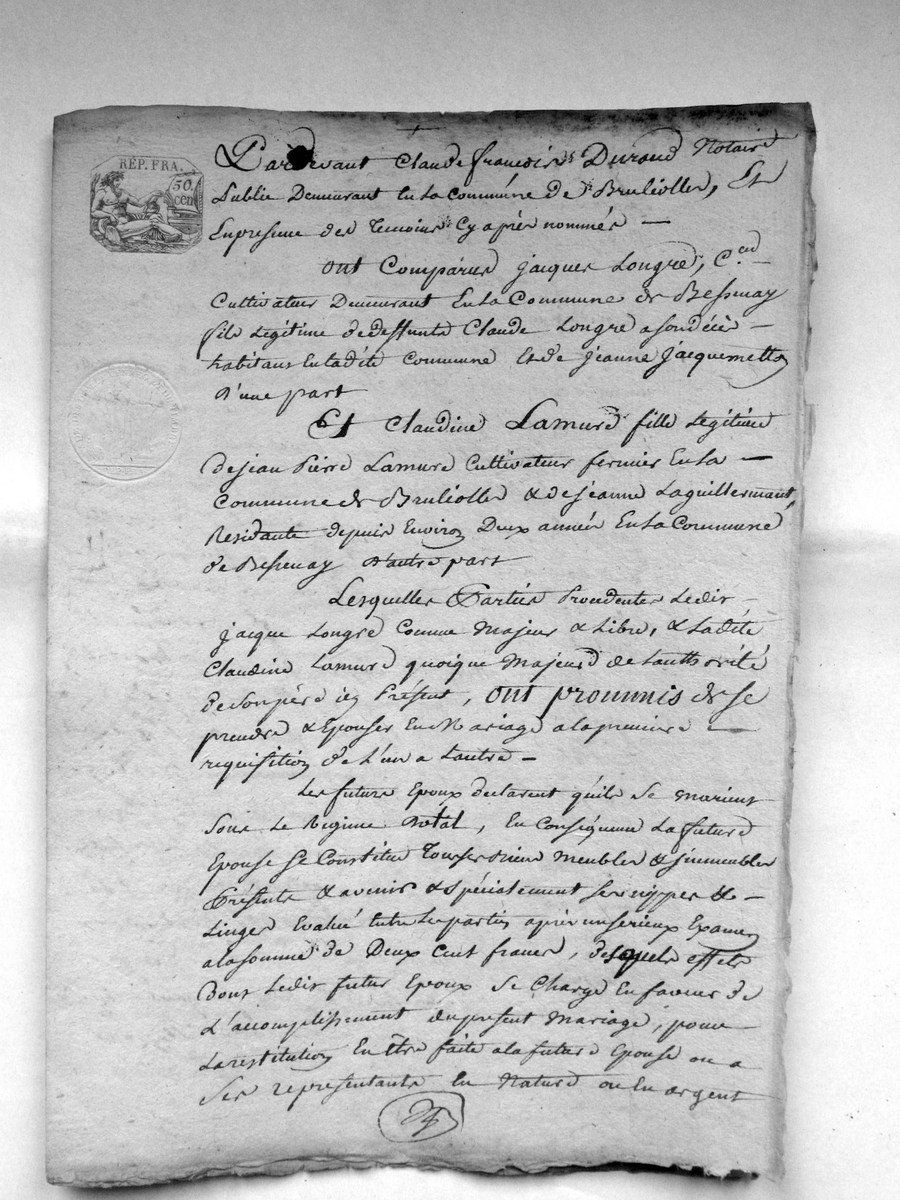 RÉP. FRA.
50
cen
Pardevant Claude françois Durand Notaire
Public Demeurant En la Commune de Bruliolles, Et
En presence des Temoins Cy après nommés —
ont Comparus jacques Longre, C.en
Cultivateur Demeurant En la Commune de Bessenay
fils Legitime de deffunts Claude Longre a son décès —
habitant En ladite Commune Et de jeanne jacquemetton
D'une part
Et Claudine Lamure fille Legitime
De jean Pierre Lamure Cultivateur fermier En la —
Commune de Bruliolles & de jeanne Laguillermant,
Residante depuis Environ Deux années En la Commune
de Bessenay D'autre part
Lesquelles Parties Procedentes Ledit
jacque Longre Comme Majeur & Libre, & Ladite
Claudine Lamure quoique Majeure de L'authorité
de Son père icy Présent, ont proummis de se
prendre & Epouser En Mariage a la premiere —
requisition de L'un a L'autre —
Les futurs Epoux declarent qu'ils Se marient
Sous Le Regime Dotal, En Conséquence La future
Epouse Se Constitue Tous ses biens meubles & jmmeubles
Présents & avenir & spécialement ses nippes & —
Linges Evalué Entre Les parties après un serieux Examen
a la somme de Deux Cent francs, desquels effets
Dont Ledit futur Epoux Se Charge En faveur de
L'accomplissement du present Mariage, pour
La restitution En être faite a la future Epouse ou a
Ses representants En Nature ou En argent